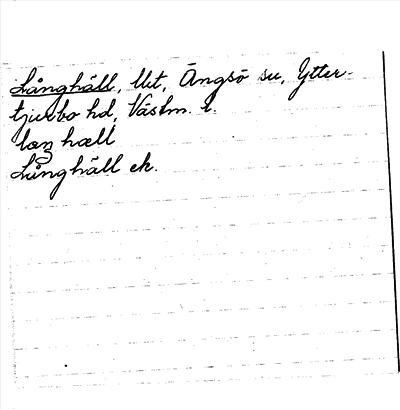 Långhäll, Ut, Ängsö sn, Ytter-
tjurbo hd, Västm. l.
laŋhæll
Långhäll ek.